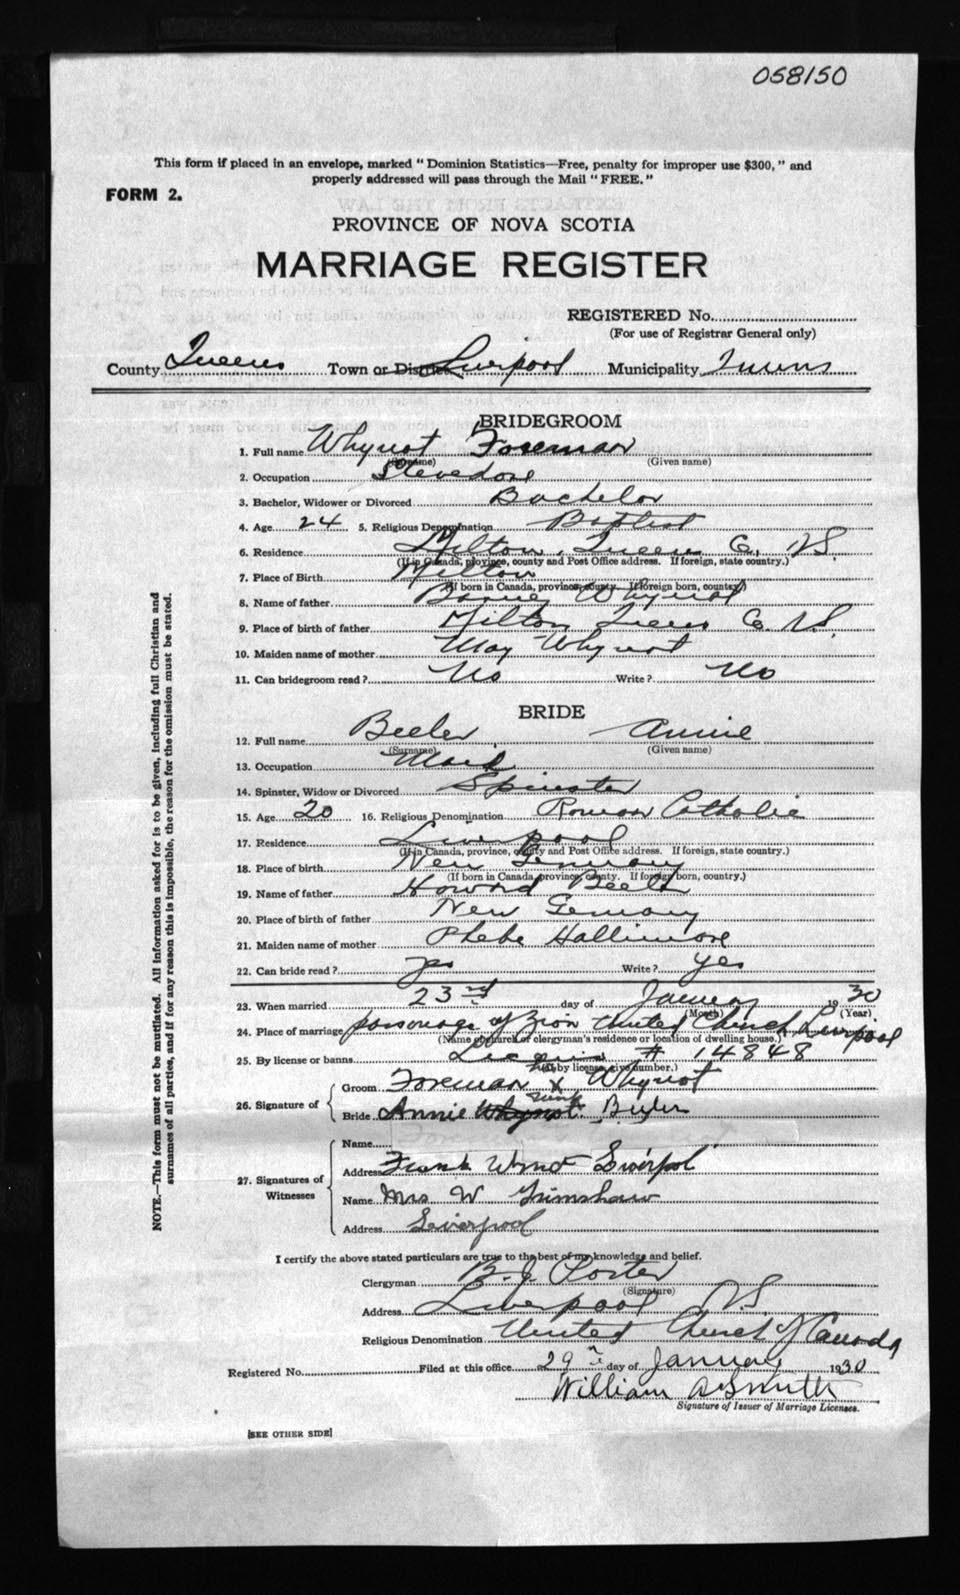 058150
This form if placed in an envelope, marked "Dominion Statistics—Free, penalty for improper use $300," and
properly addressed will pass through the Mail "FREE."
FORM 2.
PROVINCE OF NOVA SCOTIA
MARRIAGE REGISTER
REGISTERED No.
(For use of Registrar General only)
County Queens Town or District Liverpool Municipality Queens
BRIDEGROOM
1. Full name Whynot Foreman
(Surname) (Given name)
2. Occupation Stevedore
3. Bachelor, Widower or Divorced Bachelor
4. Age 24 5. Religious Denomination Baptist
6. Residence Milton, Queens Co. NS.
(If in Canada, province, county and Post Office address. If foreign, state country.)
7. Place of Birth Milton
(If born in Canada, province, county. If foreign born, country.)
8. Name of father Whynot
9. Place of birth of father Milton Queens Co. NS.
10. Maiden name of mother May Whynot
11. Can bridegroom read? No Write? No
BRIDE
12. Full name Beeler, Annie
(Surname) (Given name)
13. Occupation Maid
14. Spinster, Widow or Divorced Spinster
15. Age 20 16. Religious Denomination Roman Catholic
17. Residence Liverpool
(If in Canada, province, county and Post Office address. If foreign, state country.)
18. Place of birth New Germany
(If born in Canada, province, county. If foreign born, country.)
19. Name of father Howard Beeler
20. Place of birth of father New Germany
21. Maiden name of mother Phebe Hallimore
22. Can bride read? yes Write? yes
23. When married 23rd day of January 1930
(Month) (Year)
24. Place of marriage parsonage of Zion United Church Liverpool
(Name of church or clergyman's residence or location of dwelling house.)
25. By license or banns # 14848
(If by license, give number.)
26. Signature of
Groom Foreman x Whynot
Bride Annie Whynot. Beeler
27. Signatures of Witnesses
Name
Address Frank Liverpol
Name Mrs W Grimshaw
Address Liverpool
I certify the above stated particulars are true to the best of my knowledge and belief.
Clergyman B. J. Porter
(Signature)
Address Liverpool NS
Religious Denomination United Church of Canada
Registered No. Filed at this office 29th day of January 1930
William A Smith
Signature of Issuer of Marriage Licenses.
[SEE OTHER SIDE]
NOTE.—This form must not be mutilated. All information asked for is to be given, including full Christian and
surnames of all parties, and if for any reason this is impossible, the reason for the omission must be stated.